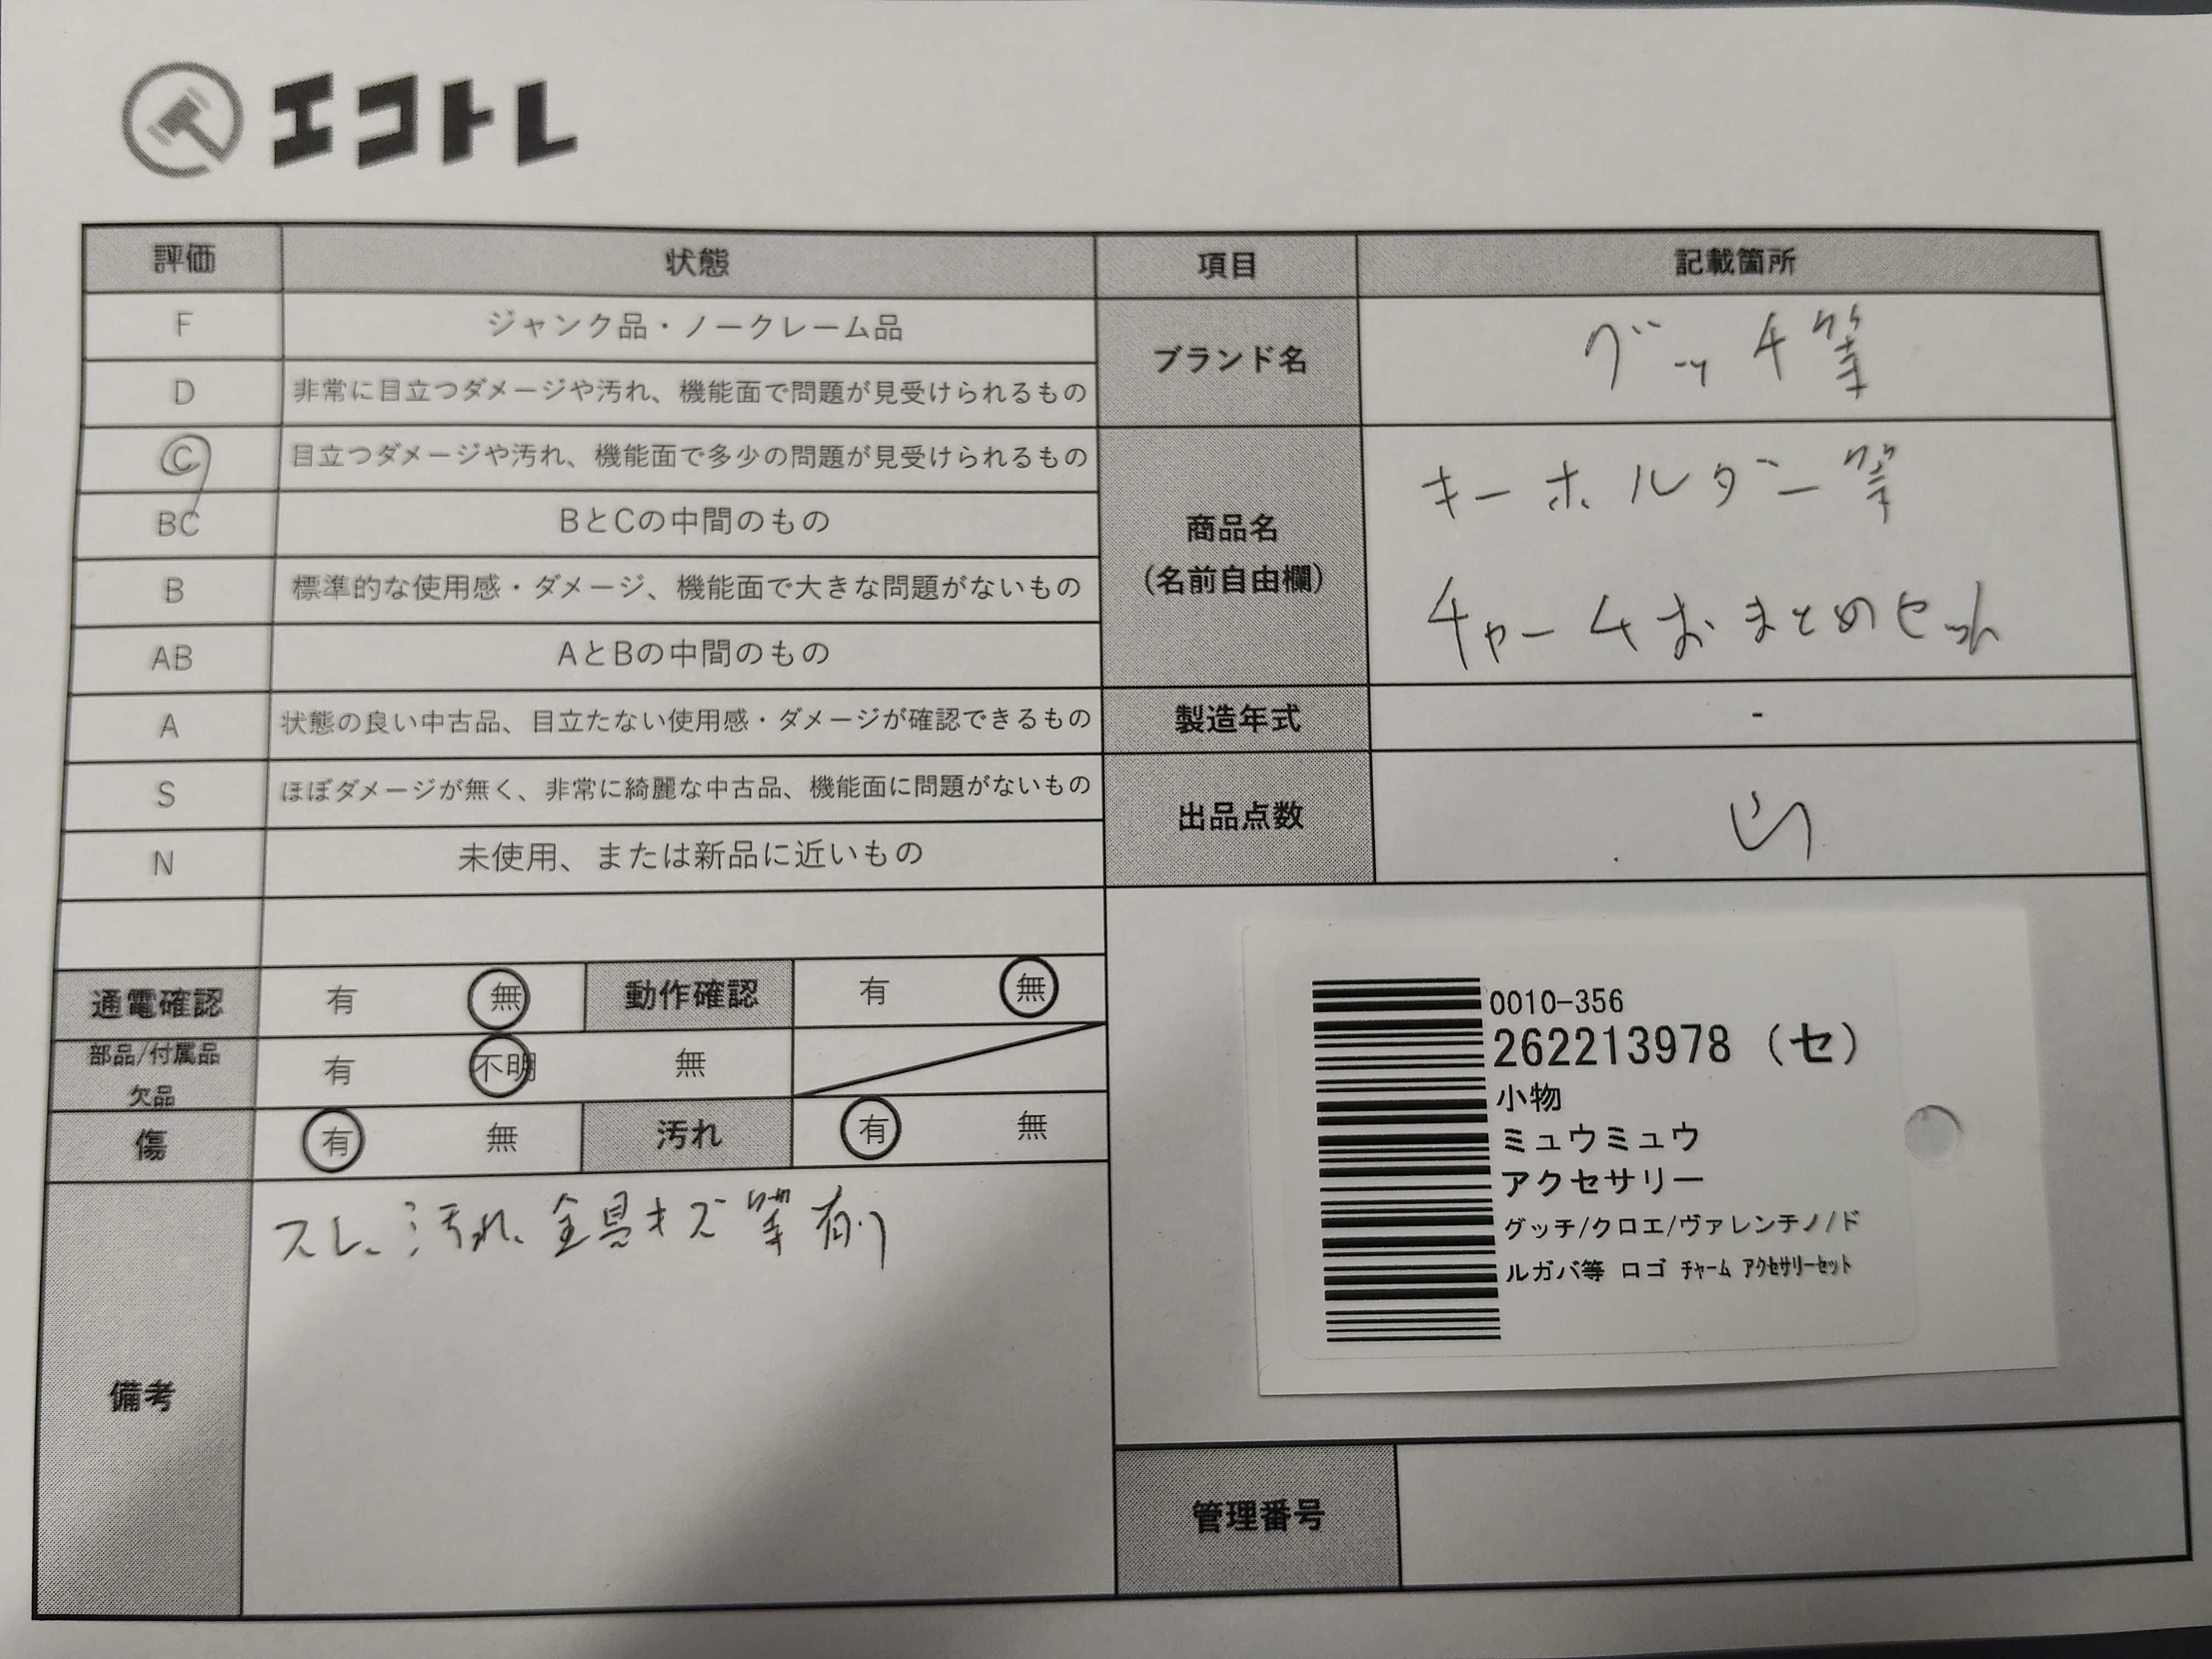 エコトレ
評価 状態 項目 記載箇所
F ジャンク品・ノークレーム品
D 非常に目立つダメージや汚れ、機能面で問題が見受けられるもの
ブランド名 グッチ等
C 目立つダメージや汚れ、機能面で多少の問題が見受けられるもの
BC BとCの中間のもの
B 標準的な使用感・ダメージ、機能面で大きな問題がないもの
AB AとBの中間のもの
商品名
(名前自由欄)
キーホルダー等
チャームおまとめセット
A 状態の良い中古品、目立たない使用感・ダメージが確認できるもの
製造年式 -
S ほぼダメージが無く、非常に綺麗な中古品、機能面に問題がないもの
N 未使用、または新品に近いもの
出品点数 山
通電確認 有 無 動作確認 有 無
部品/付属品
欠品
有 不明 無
傷 有 無 汚れ 有 無
備考
スレ、汚れ、金具キズ等有り
0010-356
262213978 (セ)
小物
ミュウミュウ
アクセサリー
グッチ/クロエ/ヴァレンチノ/ド
ルガバ等 ロゴ チャーム アクセサリーセット
管理番号